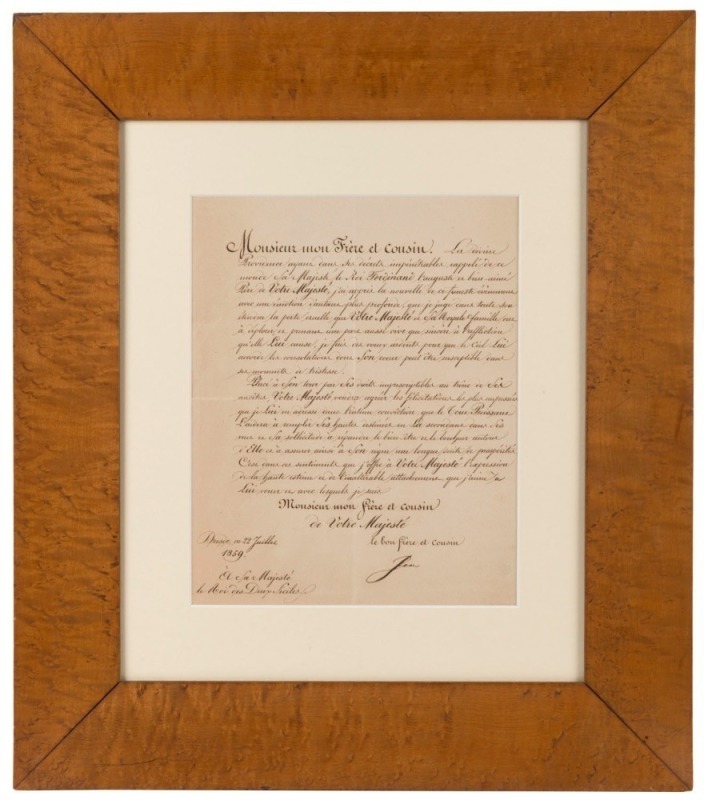 Monsieur mon Frère et cousin. La divine
Providence ayant dans ses décrets impénétrables rappelé de ce
monde Sa Majesté le Roi Ferdinand l'auguste et bien-aimé
Père de Votre Majesté, j'ai appris la nouvelle de ce funeste événement
avec une émotion d'autant plus profonde, que je juge dans toute son
étendue la perte cruelle que Votre Majesté et Sa Royale famille ont
à déplorer et prenant une part aussi vive que sincère à l'affliction
qu'elle Lui cause, je fais des vœux ardents pour que le Ciel Lui
accorde les consolations dont Son cœur peut être susceptible dans
ces moments de tristesse.
à Son tour par Ses droits imprescriptibles au trône de Ses
ancêtres, Votre Majesté voudra agréer les félicitations les plus empressées
que je Lui en adresse dans l'intime conviction, que le Tout Puissant
L'aidera à remplir Ses hautes destinées en La secondant dans Ses
vues et Sa sollicitude à répandre le bien-être et le bonheur autour
d'Elle et à assurer ainsi à Son règne une longue suite de prospérités.
C'est dans ces sentiments que j'offre à Votre Majesté l'expression
de la haute estime et de l'inaltérable attachement, que j'aime à
Lui vouer et avec lesquels je suis
Monsieur mon frère et cousin
de Votre Majesté
le bon frère et cousin
Dresde, ce 22 Juillet
1859.
Jean
À Sa Majesté
le Roi des Deux Siciles